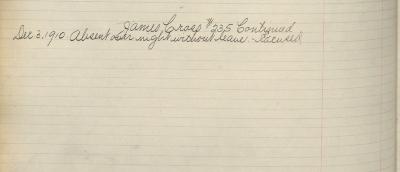 James Cross #235 Continued
Dec 3, 1910. Absent over night without leave. Excused.